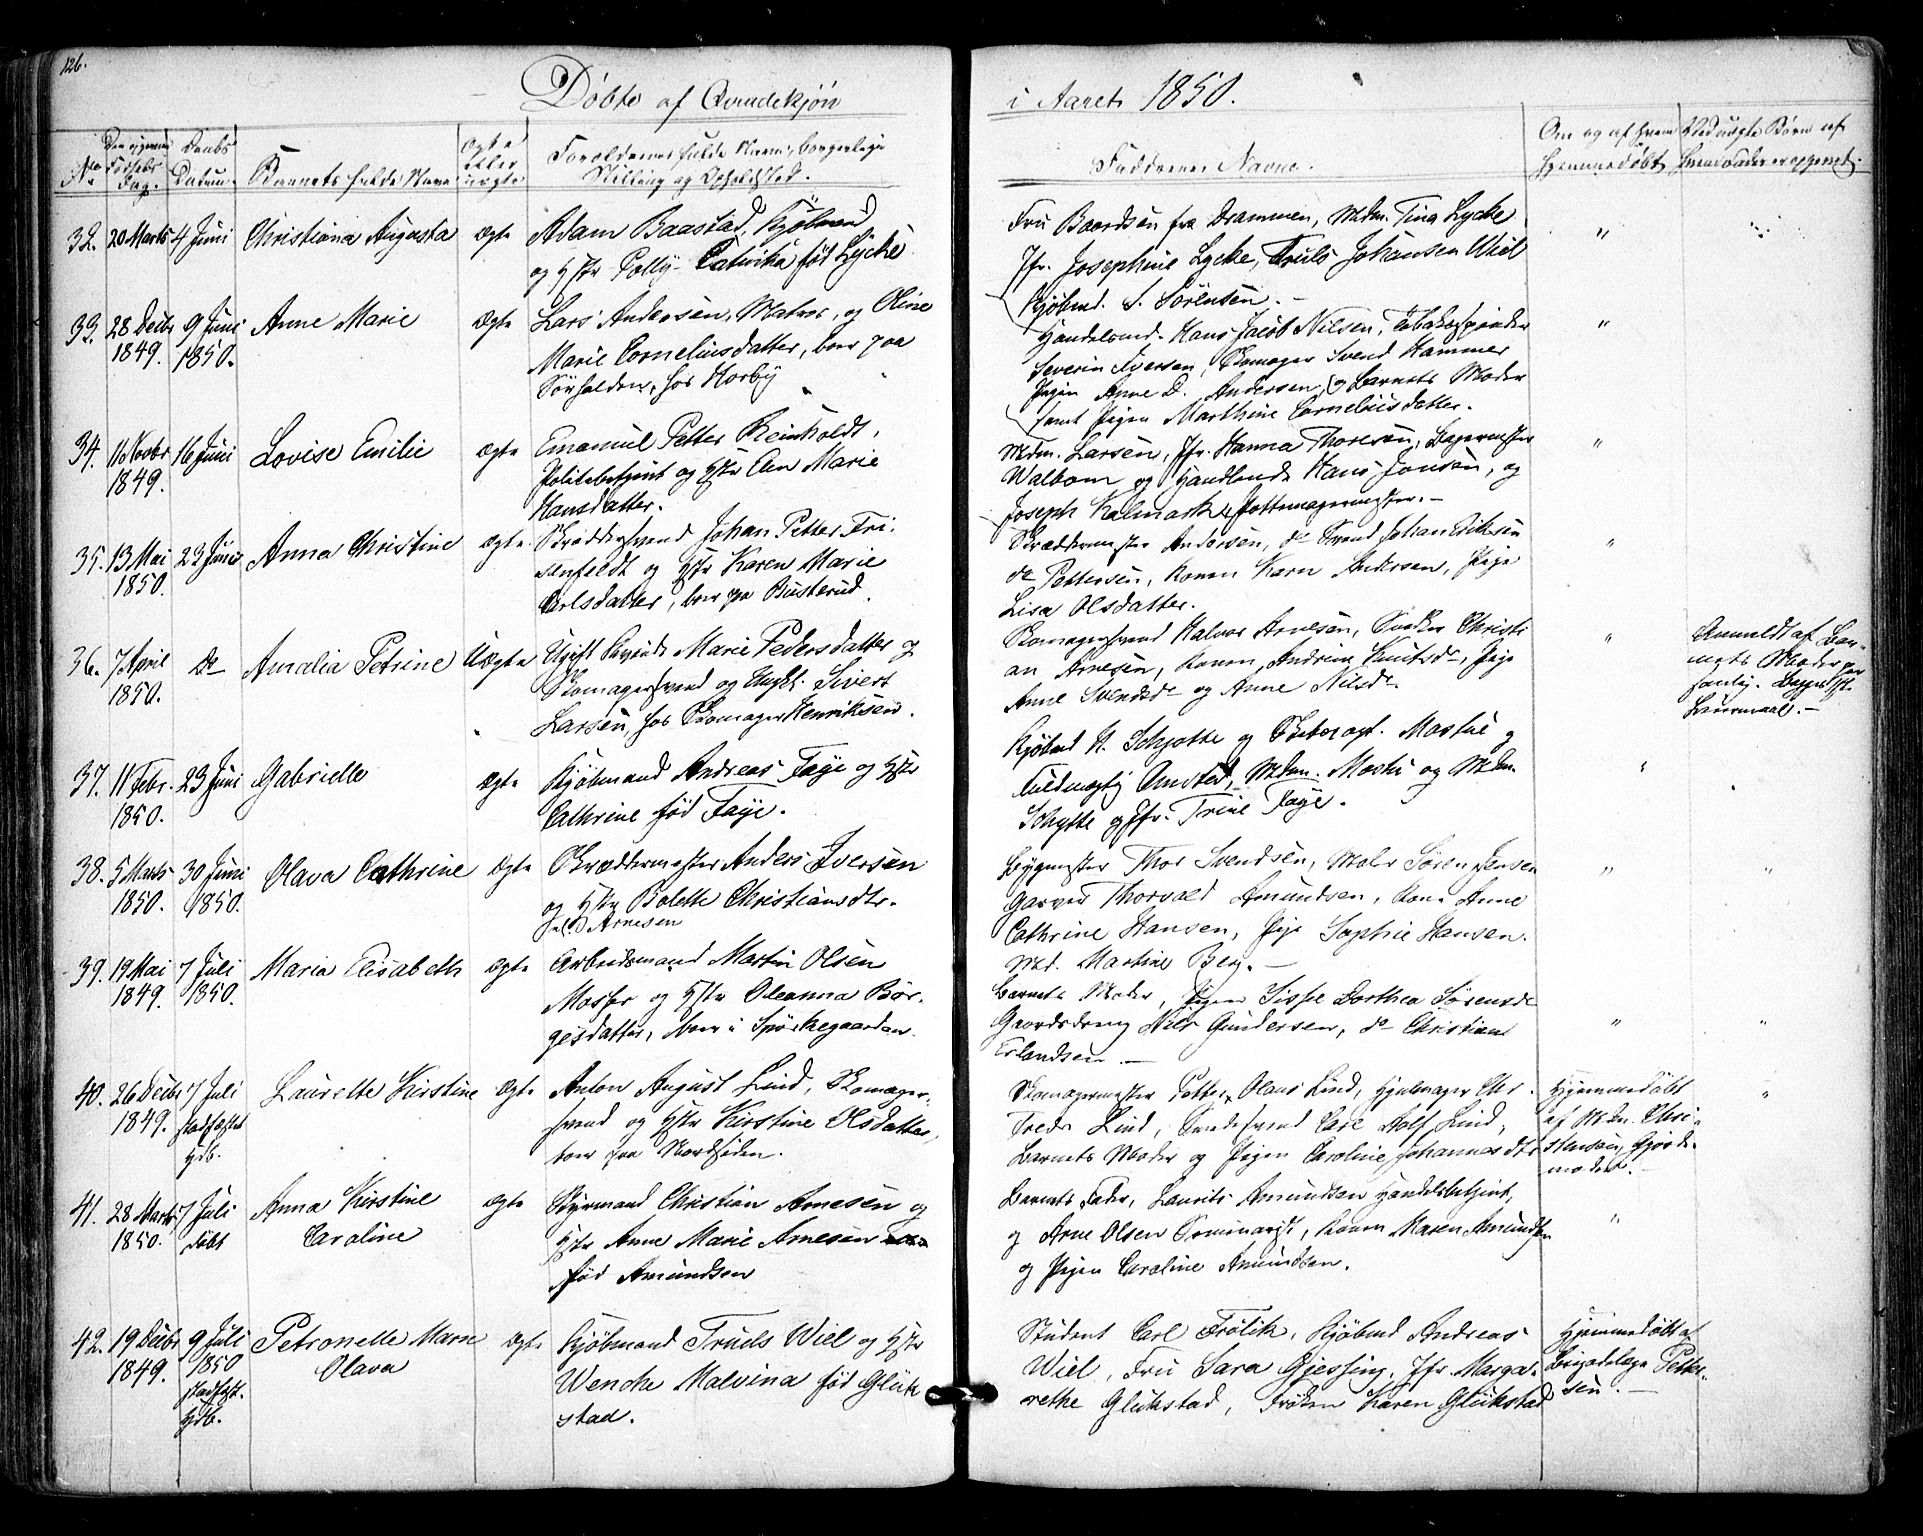 126.
Døbte af Qvindekjøn
i Aaret 1850.
No
Den igjenn Fødsels Dag.
Daabs Datum.
Barnets fulde Navn
Ægte eller uægte
Forældrenes fulde Navn, borgerlige
Stilling og Opholdsted.
Faddernes Navne.
Om og af hvem
hjemmedøbt
Ved uægte Børn af
32. 20 Marts 4 Juni Christiana Augusta ægte Adam Baastad, Kjöbmd
og Hstr Polly Catinka född Lycke
Fru Baardsen fra Drammen, Mdm. Tina Lycke
Jfr. Josephine Lycke, Truls Johansen Wiel
Kjöbmd. S. Sörensen. -
33. 28 Decbr 1849. 9 Juni 1850. Anne Marie ægte Lars Andersen, Matros, og Oline
Marie Corneliusdatter, boer paa
Sörhalden, hos Horby
Handelsmd. Hans Jacob Nilsen, Tobakspinder
Severin Iversen, Skomager Svend Hammer
Pigen Anne D. Andersen, og Barnets Moder
samt Pigen Marthine Corneliusdatter.
34. 11 Novbr 1849. 16 Juni Lovise Emilie ægte Emanuel Petter Reinholdt,
Politibetjent og Hstr Elen Marie
Hansdatter.
Mdm. Larsen, Jfr. Hanna Thoresen, Bagermester
Walbom og Handlende Hans Jonsen, og
Joseph Kalmark, Pottemagermester. -
35. 13 Mai 1850. 23 Juni Anna Christine ægte Skræddersvend Johan Petter Fri-
senfeldt og Hstr Karen Marie
Carlsdatter, boer paa Busterud.
Skræddermester Andersen, do Svend Johan Eriksen
do Pettersen, Konen Karn Andersen, Pige
Lisa Olsdatter.
36. 7 April 1850. Do Amalia Petrine Uægte Ugift Qvinde Marie Pedersdatter og
Skomagersvend og Ungk. Sivert
Larsen, hos Skomager Henriksen.
Skomagersvend Halvor Arnesen, Snedker Christi
an Arnesen, Konen Andrine Knutsdr, Pige
Anne Svendsdr og Anne Nilsdr
Anmeldt af Bar-
nets Moder per
sonlig. Begges 1st
Leiermaal. -
37. 11 Febr. 1850. 23 Juni Gabrielle ægte Kjöbmand Andreas Faye og Hstr
Cathrine född Faye.
Kjöbmd N. Schjøtte og Skibscapt. Mostue og
Fuldmægtig Omsted, Mdm. Mostue og Mdm.
Schytte og Jfr. Trine Faye.
38. 5 Marts 1850. 30 Juni 1850. Olava Cathrine ægte Skræddermester Anders Iversen
og Hstr Bolette Christiansdtr.
född Arnesen
Bygmester Thor Svendsen, Maler Sören Jensen
Garver Thorvald Amundsen, Kone Anne
Cathrine Hansen, Pige Sophie Hansen.
Md. Martine Berg. -
39. 19 Mai 1849. 7 Juli 1850. Maria Elisabeth ægte Arbeidsmand Martin Olsen
Mosser og Hstr Oleanna Bör-
gesdatter, boer i Spörkegaarden.
Barnets Moder, Pigen Sisse Dorthea Sörensdr
Gaardsdreng Nils Gundersen, do Christian
Erlandsen. -
40. 26 Decbr 1849. 7 Juli stadfæstet Hdb. Laurette Kirstine ægte Anton August Lind, Skomager-
svend og Hstr Kirstine Olsdatter,
boer paa Nordsiden.
Skomagermester Petter Olaus Lind, Hjulmager Chr.
Fredr. Lind, Smedesvend Carl Adolf Lind,
Barnets Moder og Pigen Caroline Johannesdtr
Hjemmedöbt
af Mdm. Chri-
stensen, Gjorde-
moder. -
41. 28 Marts 1850. 7 Juli döbt Anna Kirstine
Caroline ægte Styrmand Christian Arnesen og
Hstr Anne Marie Arnesen
född Amundsen
Barnets Fader, Laurits Amundsen Handelsbetjent,
og Arne Olsen Seminarist, Konen Maren Amundsen
og Pigen Caroline Amundsen.
42. 19 Decbr 1849. 9 Juli 1850 stadfæst. Hdb. Petronelle Marie
Olava ægte Kjöbmand Truls Wiel og Hstr
Wenche Malvina född Glük
stad.
Student Carl Frölik, Kjöbmd Andreas
Wiel, Fru Sara Gjessing, Jfr. Marga-
rethe Glükstad, Fröken Karen Glükstad
Hjemmedöbt af
Brigadelæge Petter-
sen. -